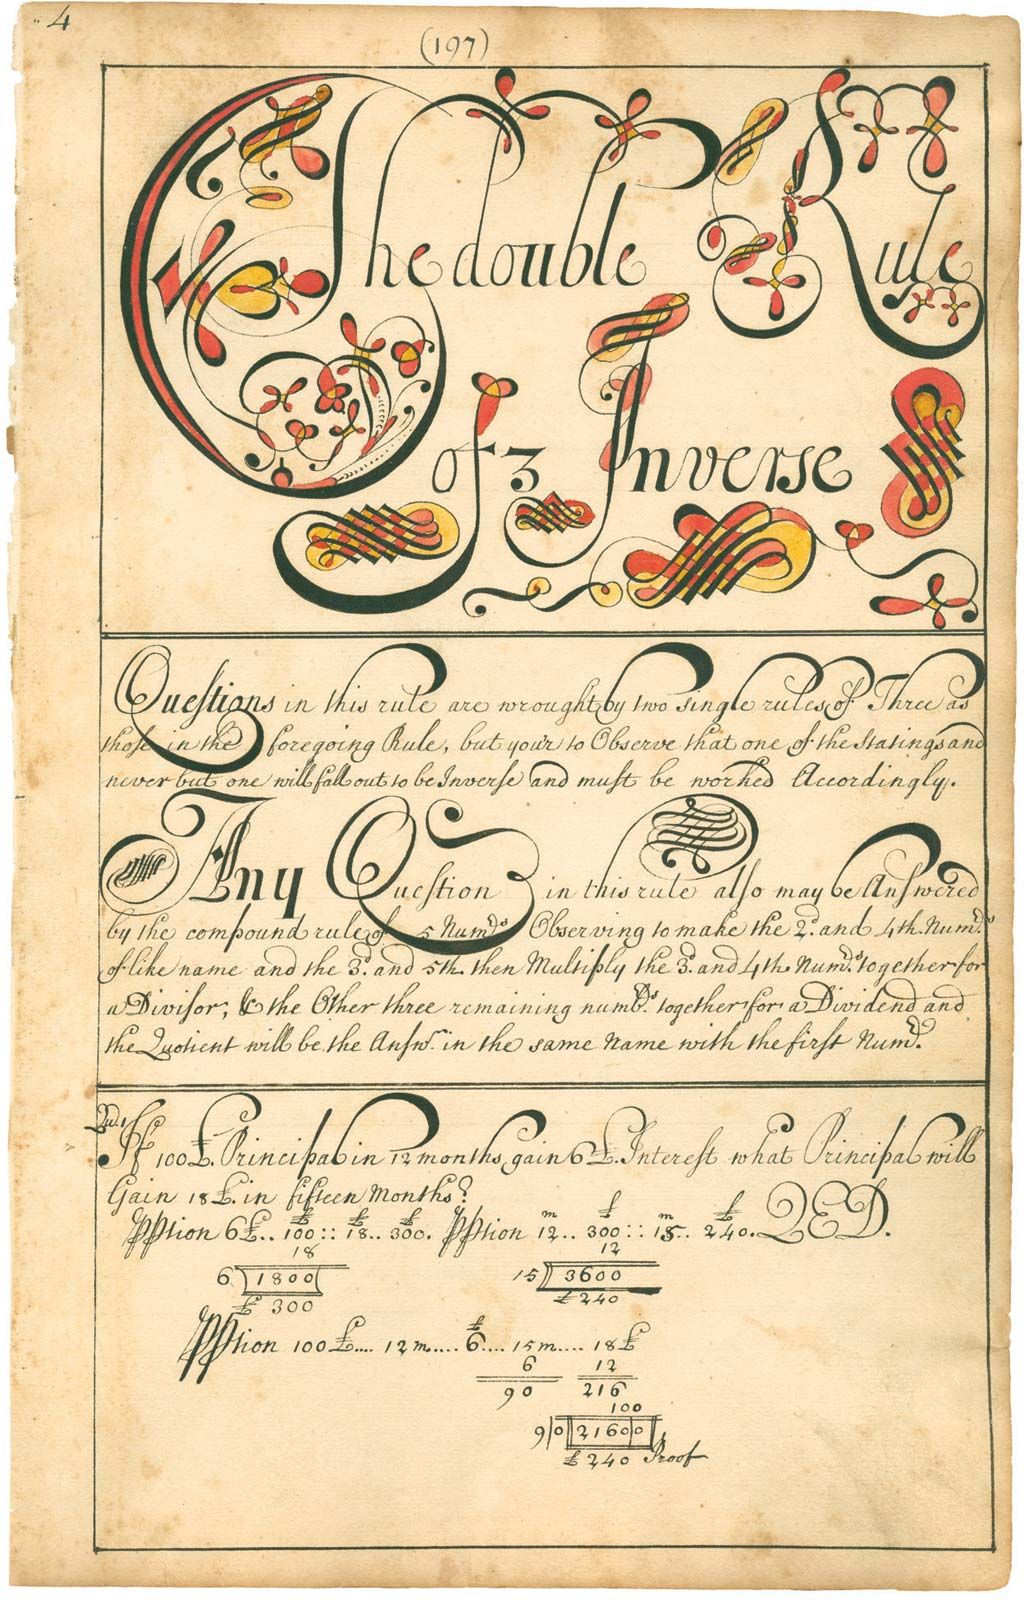 4
(197)
The double Rule
of 3 Inverse
Questions in this rule are wrought by two single rules of Three as
those in the foregoing Rule, but your to Observe that one of the Statings and
never but one will fall out to be Inverse and must be worked Accordingly.
Any Question in this rule also may be Answered
by the compound rule of 5 Numds Observing to make the 2d. and 4th. Numds
of like name and the 3d. and 5th. then Multiply the 3d. and 4th Numds together for
a Divisor; & the Other three remaining numbds. together for a Dividend and
the Quotient will be the Answr. in the same Name with the first Numd.
If 100 £. Principal in 12 months gain 6 £. Interest what Principal will
Gain 18 £. in fifteen Months?
£ £ £ m £ m £
PPtion 6£.. 100 :: 18.. 300. PPtion 12.. 300 :: 15.. 240. QED.
18 12
6) 1800( 15) 3600
£ 300 £ 240
£
PPtion 100£.... 12m..... 6.... 15m.... 18£
6 12
90 216
100
9|0 |2160|0
£ 240 Proof